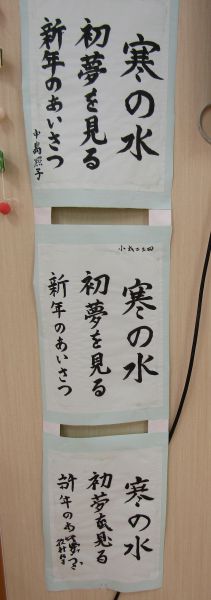 寒の水
初夢を見る
新年のあいさつ
中島照子
寒の水
初夢を見る
新年のあいさつ
寒の水
初夢を見る
新年のあいさつ